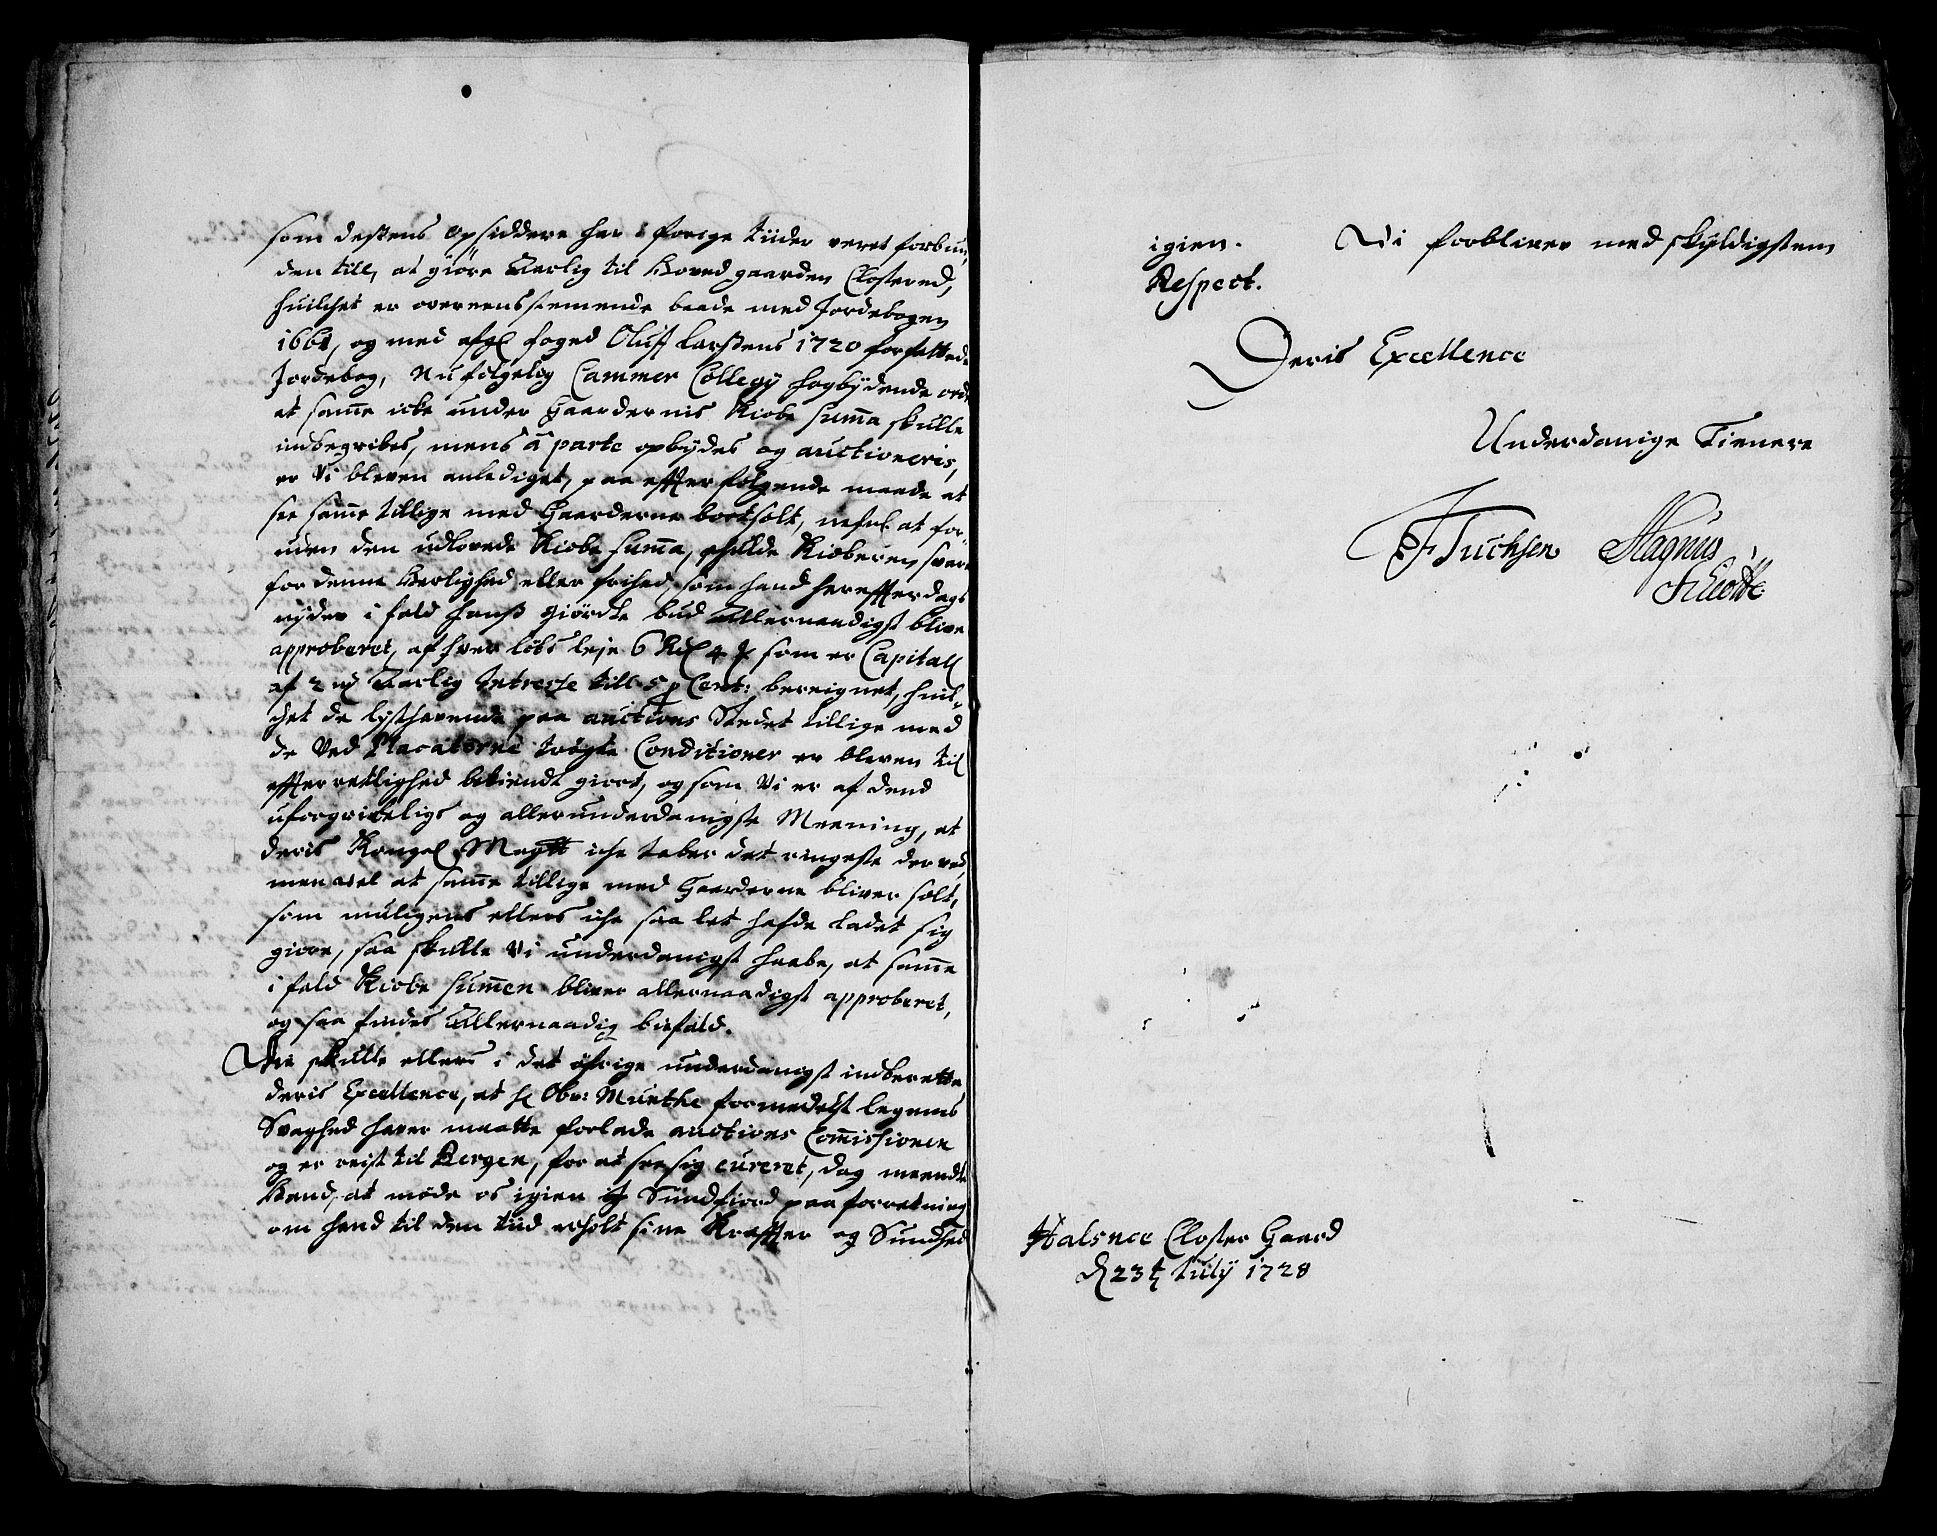 som destens opsiddere har i forige tiider veret forbun,
den till, at giøre Aarlig til Hovedgaarden Clostered,
huilchet er overeensstemende baade med Jordebogen
1661, og med afg: foged Oluf Larsens 1720 forfattede
Jordebog, Nu følgelig Cammer Collegy høybydende ord
at samme icke under Gaardernis Kiøbe Summa skulle
indbegribes, mens â parte opbydes og auctioneris,
er Vi bleven anlediget, paa effterfølgende maade at
see samme tillige med Gaarderne bortsolt, nefnl: at for-
uden den udlovede Kiøbe Summa, skulde Kiøberen svare
for denne Herlighed eller frihed, som hand hereffterdags
nyder i fald hanß giordte bud Allernaadigst blive
approberet, af hver løbs leje 6 Rd 4 ß som er Capitall
af 2 Aarlig Intresse till 5 p Cent: bereignet, huil-
chet de lysthavende paa auctions Stedet tillige med
de Ved Placaterne trøgte Conditioner er bleven til
effterretlighed bekiendt giort, og som Vi er af dend
uforgribelige og allerunderdanigste Meening, at
deris Kongel Maytt iche taber det ringeste derved,
men vel at samme tillige med Gaarderne bliver solt,
som muligens ellers iche saa let hafde ladet sig
giøre, saa skulle Vi underdanigst haabe, at samme
i fald Kiøbe Summen bliver allernaadigst approberet,
og saa findes Allernaadig bifald.
Vi skulle ellers i det øfrige underdanigst indberette
deris Excellence, at H: Obr: Munthe formedelst legems
Svaghed haver maatte forlade auctions Commissionen
og er reist til Bergen, for at see sig cureret, dog meendte
Hand, at møde os igien i Sundfiord paa forretning
om hand til den tiid erholt sine Kræffter og Sundhed
igien. Vi forbliver med skyldigstem
Respect.
Deris Excellence
Underdanige Tienere
F Tuchsen Magnus
Schiøtte
Halsnøe Closter Gaard
d 23t July 1728